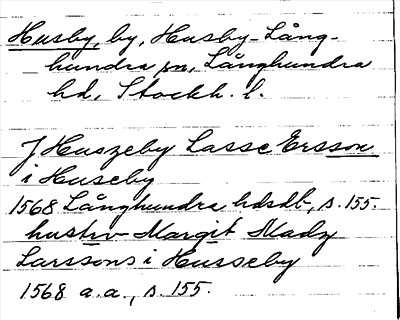 Husby, by, Husby-Lång-
hundra sn, Långhundra
hd, Stockh. l.
J Huszeby Lasse Ersson
i Huseby
1568 Långhundra hdsdb, s. 155.
hustrv Margit Mady
Larssons i Husseby,
1568 a.a., s. 155.